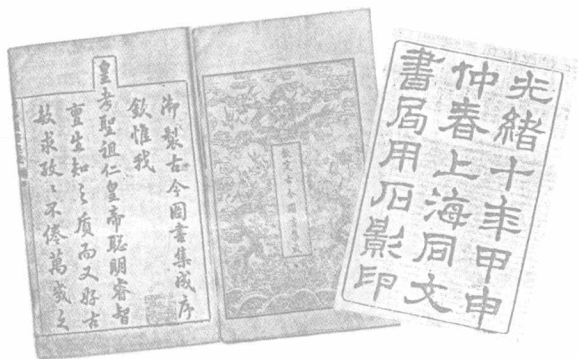 光緒十年甲申
仲春上海同文
書局用石影印
御製古今圖書集成序
欽惟我
皇考聖祖仁皇帝聰明睿智
亶生知之質而又好古
敏求孜〻不倦萬幾之